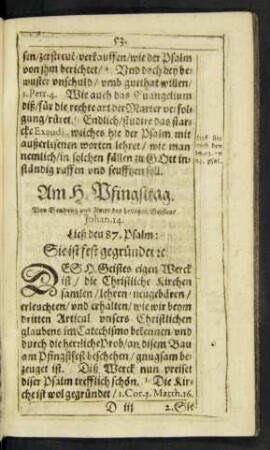 53.
sen/zerstreut/verkauffen/wie der Psalm
von ihm berichtet/ Vnd doch bey be-
wuster vnschuld/ vmb gutthat willen/
1. Petr. 4. Wie auch das Euangelium
diß/ für die rechte art der Marter verfol-
gung/ rüret. Endlich/ studire das star-
cke Exaudi, welches hie der Psalm mit
außerlesenen worten lehret/ wie man
nemlich/ in solchen fällen zu GOtt in-
ständig ruffen vnd seufftzen soll.
Am H. Pfingsttag.
Von Sendung vnd Amet des heiligen Geistes/
Johan. 14.
Ließ den 87. Psalm:
Sie ist fest gegründet ꝛc.
DES H. Geistes eigen Werck
ist/ die Christliche Kirchen
samlen/ lehren/ neugebären/
erleuchten/ vnd erhalten/ wie wir beym
dritten Articul vnsers Christlichen
glaubens im Catechismo bekennen/ vnd
durch die herrliche Prob/ an disem Bau
am Pfingstfest beschehen/ gnugsam be-
zeuget ist. Diß Werck nun preiset
diser Psalm trefflich schön. 1. Die Kir-
che ist wol gegründet/ 1. Cor. 3. Matth. 16.
D iii
2. Sie